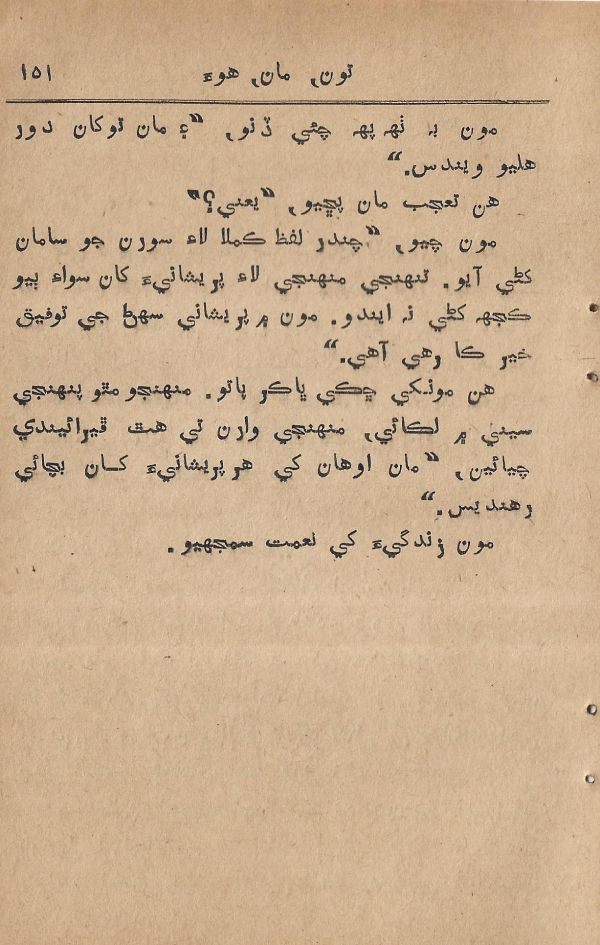 تون، مان، هوءَ ١٥١
مون به ٺهه پهه چئي ڏنو، ”۽ مان توکان دور
هليو ويندس.“
هن تعجب مان پڇيو، ”يعني؟“
مون چيو، ”چندر لفظ ڪملا لاءِ سورن جو سامان
کڻي آيو. تنهنجي منهنجي لاءِ پريشانيءَ کان سواءِ ٻيو
ڪجهه کڻي نه ايندو. مون ۾ پريشاني سهڻ جي توفيق
خير ڪا رهي آهي.“
هن مونکي ڇڪي ڀاڪر پاتو. منهنجو مٿو پنهنجي
سيني ۾ لڪائي، منهنجي وارن تي هٿ ڦيرائيندي
چيائين، ”مان اوهان کي هر پريشانيءَ کان بچائي
رهنديس.“
مون زندگيءَ کي نعمت سمجهيو.